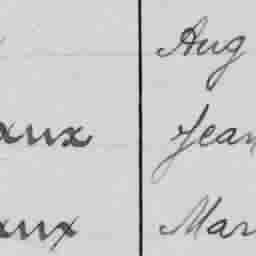 Aug
aux Jean
aux Mar